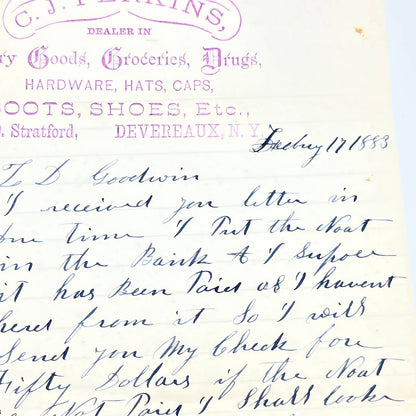 C. J. PERKINS,
DEALER IN
ry Goods, Groceries, Drugs,
HARDWARE, HATS, CAPS,
BOOTS, SHOES, Etc.,
Stratford, DEVEREAUX, N.Y.
Feebuy 17 1883
Z D Goodwin
I received you letter in
one time I Put the Noat
in the Bank & I Supose
it has Been Paied as I havent
herd from it So I will
Send you My Check fore
Fifty Dollars if the Noat
Not Paied I Shall looke